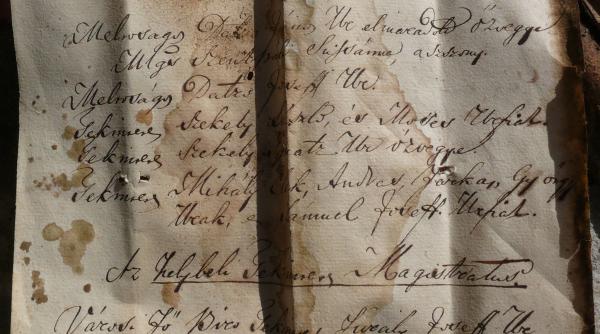 Melmoságos Datzo János Ur elmaradott özvegye
Mlgs Szent Susánna, aszszony.
Melmoságos Datzó Joseff Ur.
Tekintetes Szekely László, és Moses Urfiak.
Tekintetes Szekely Ur özvegye.
Tekintetes Mihály András, Farkas György
Urak, és Sámuel Joseff Urfiak.
Az helybeli Tekintetes Magistratus.
Városi Fő Biro Joseff Ur